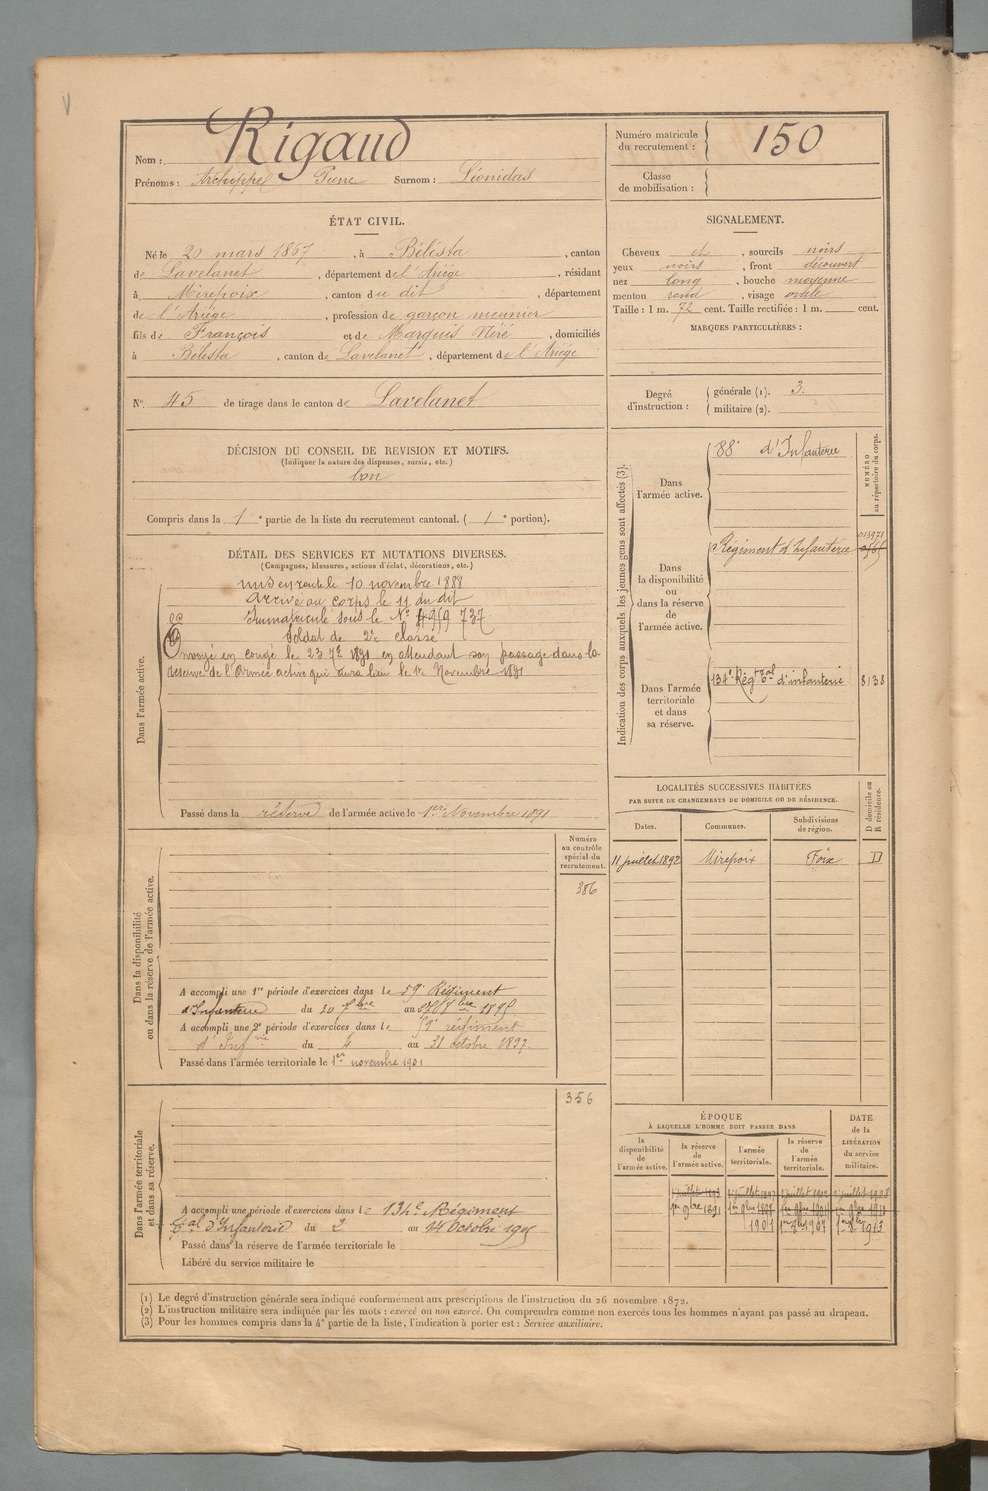 Nom : Rigaud
Prénoms : Archippe Pierre Surnom : Léonidas
Numéro matricule du recrutement : 150
Classe de mobilisation :
ÉTAT CIVIL.
Né le 20 mars 1867, à Bélesta, canton
de Lavelanet, département de l'Ariège, résidant
à Mirepoix, canton du dit, département
de l'Ariège, profession de garçon meunier
fils de François et de Marquis Néré, domiciliés
à Bélesta, canton de Lavelanet, département de l'Ariège
N° 45 de tirage dans le canton de Lavelanet
SIGNALEMENT.
Cheveux et, sourcils noirs
yeux noirs, front découvert
nez long, bouche moyenne
menton rond, visage ovale
Taille : 1 m. 72 cent. Taille rectifiée : 1 m. cent.
MARQUES PARTICULIÈRES :
Degré d'instruction : générale (1). 3.
militaire (2).
DÉCISION DU CONSEIL DE REVISION ET MOTIFS.
(Indiquer la nature des dispenses, sursis, etc.)
bon
Compris dans la 1e partie de la liste du recrutement cantonal. (1e portion).
DÉTAIL DES SERVICES ET MUTATIONS DIVERSES.
(Campagnes, blessures, actions d'éclat, décorations, etc.)
Dans l'armée active.
mis en route le 10 novembre 1888
Arrivé au corps le 11 du dit
Immatriculé sous le N° 737
Soldat de 2e classe
Envoyé en congé le 23 7bre 1891 en attendant son passage dans la
réserve de l'Armée active qui aura lieu le 1er Novembre 1891
Passé dans la réserve de l'armée active le 1er Novembre 1891
Indication des corps auxquels les jeunes gens sont affectés (3).
NUMÉRO au répertoire du corps.
Dans l'armée active.
88e d'Infanterie
Dans la disponibilité ou dans la réserve de l'armée active.
Régiment d'Infanterie
013971
Dans l'armée territoriale et dans sa réserve.
134e Régt Tal d'infanterie 8138
LOCALITÉS SUCCESSIVES HABITÉES
PAR SUITE DE CHANGEMENTS DE DOMICILE OU DE RÉSIDENCE.
Dates. Communes. Subdivisions de région. D domicile ou R résidence.
11 juillet 1892 Mirepoix Foix D
Numéro au contrôle spécial du recrutement.
386
Dans la disponibilité ou dans la réserve de l'armée active.
A accompli une 1re période d'exercices dans le 59e Régiment
d'Infanterie du 20 7bre au 8bre 1895
A accompli une 2e période d'exercices dans le 59e régiment
d'Infrie du 4 au 31 octobre 1897.
Passé dans l'armée territoriale le 1er novembre 1901
356
Dans l'armée territoriale et dans sa réserve.
A accompli une période d'exercices dans le 134e Régiment
Tal d'Infanterie du 2 au 14 Octobre 1905
Passé dans la réserve de l'armée territoriale le
Libéré du service militaire le
ÉPOQUE
À LAQUELLE L'HOMME DOIT PASSER DANS
la disponibilité de l'armée active.
la réserve de l'armée active.
l'armée territoriale.
la réserve de l'armée territoriale.
DATE de la LIBÉRATION du service militaire.
1 juillet 1897
1er 9bre 1891
1901 1907 1913
(1) Le degré d'instruction générale sera indiqué conformément aux prescriptions de l'instruction du 26 novembre 1872.
(2) L'instruction militaire sera indiquée par les mots : exercé ou non exercé. On comprendra comme non exercés tous les hommes n'ayant pas passé au drapeau.
(3) Pour les hommes compris dans la 4e partie de la liste, l'indication à porter est : Service auxiliaire.